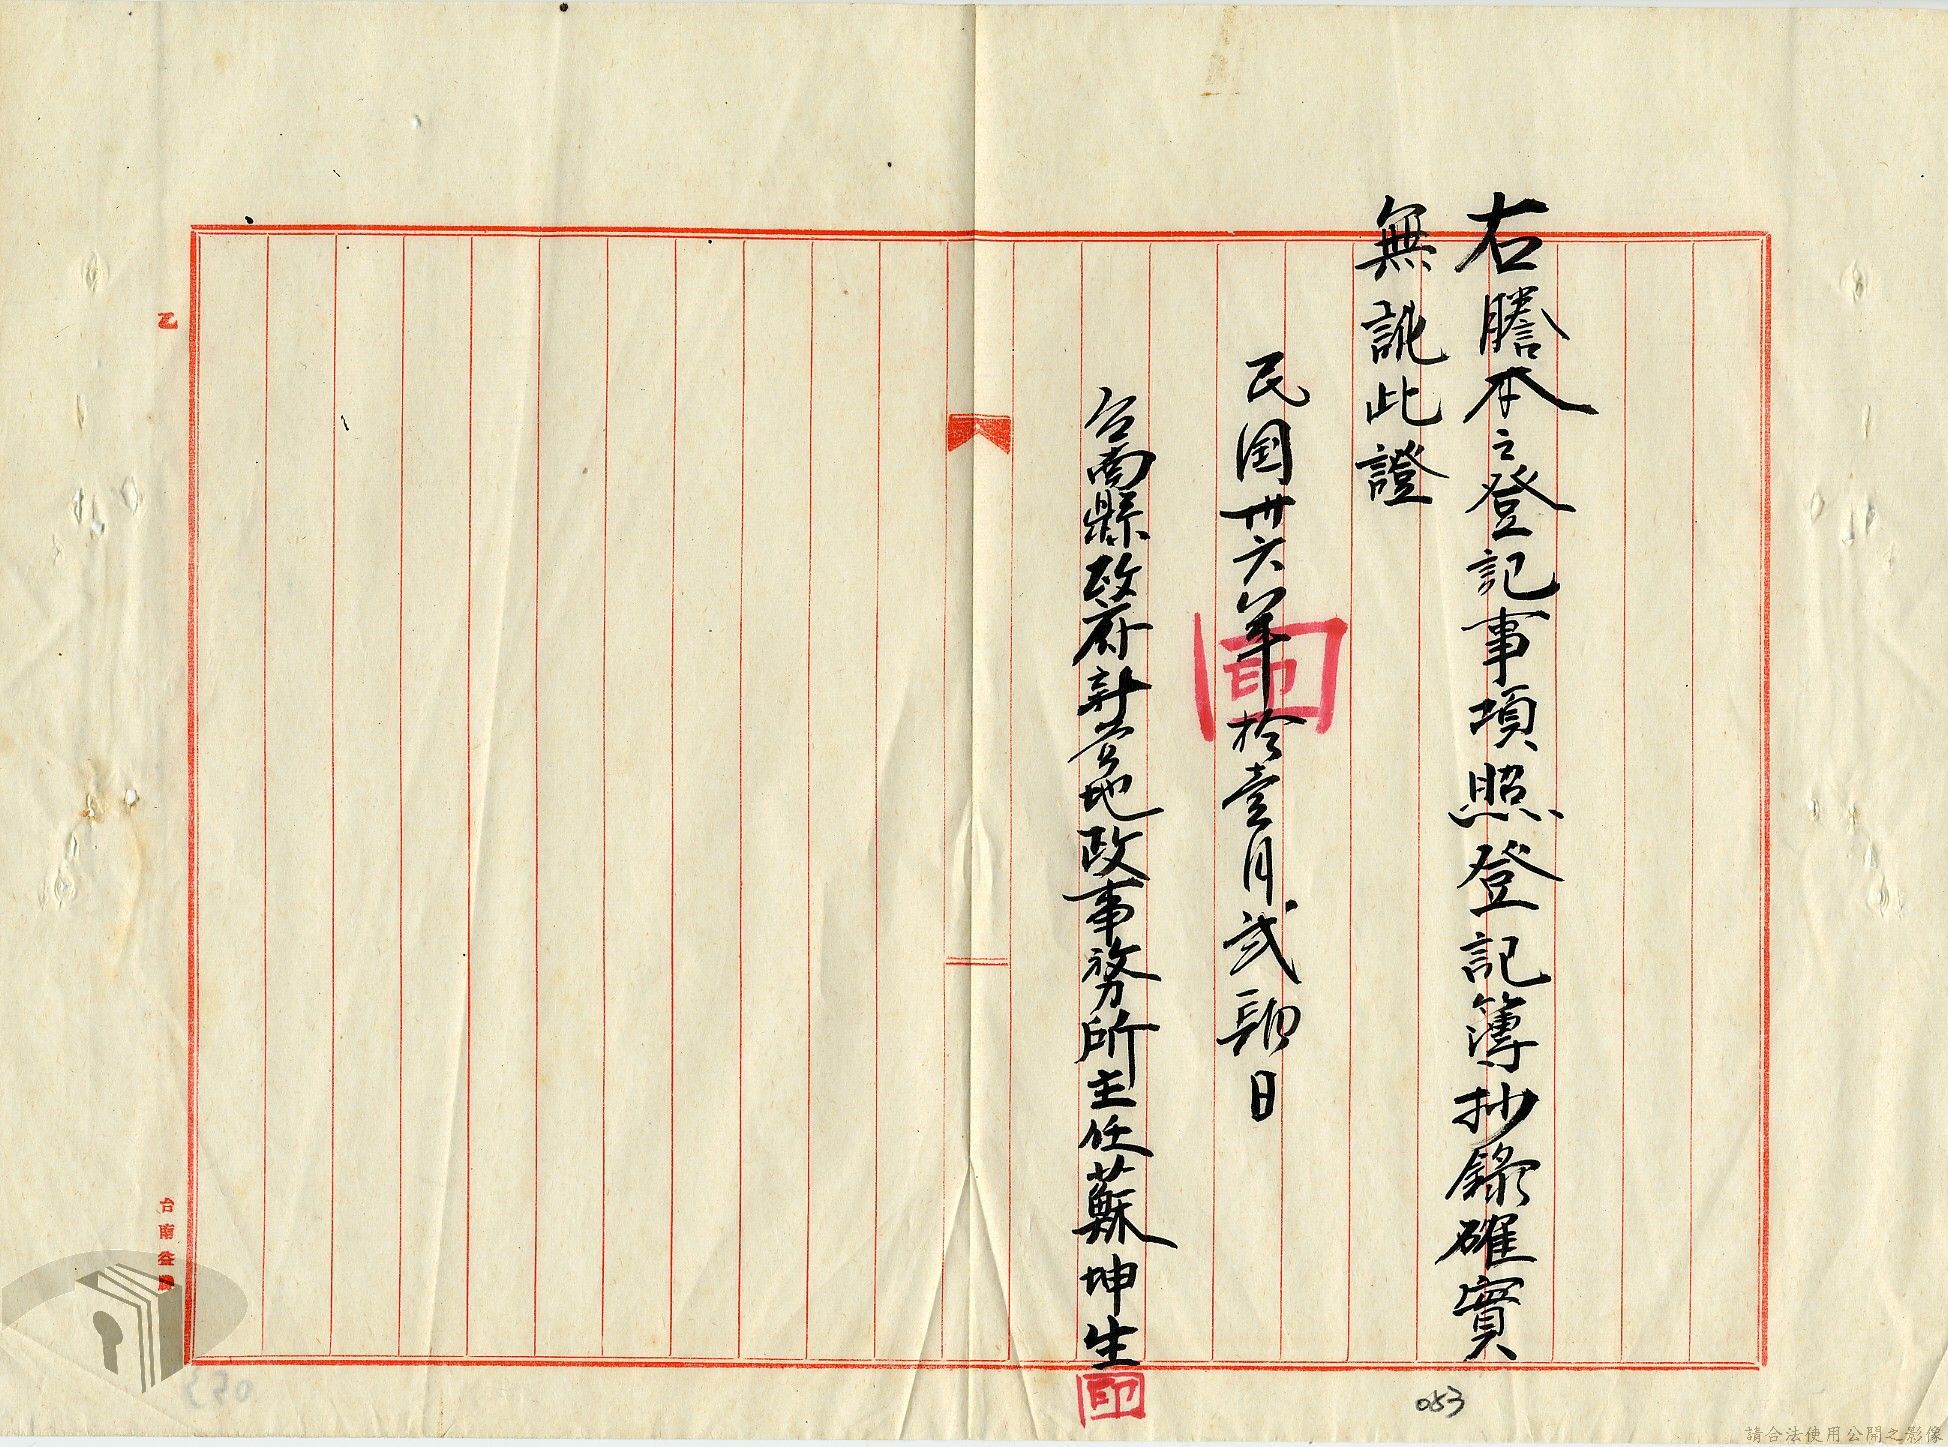 右謄本之登記事項照登記簿抄錄確實
無訛此證
民国卅六年拾壹月弍 日
印
台南縣政府新营地政事務所主任蘇坤生
印
乙
台南益
053
請合法使用公開之影像